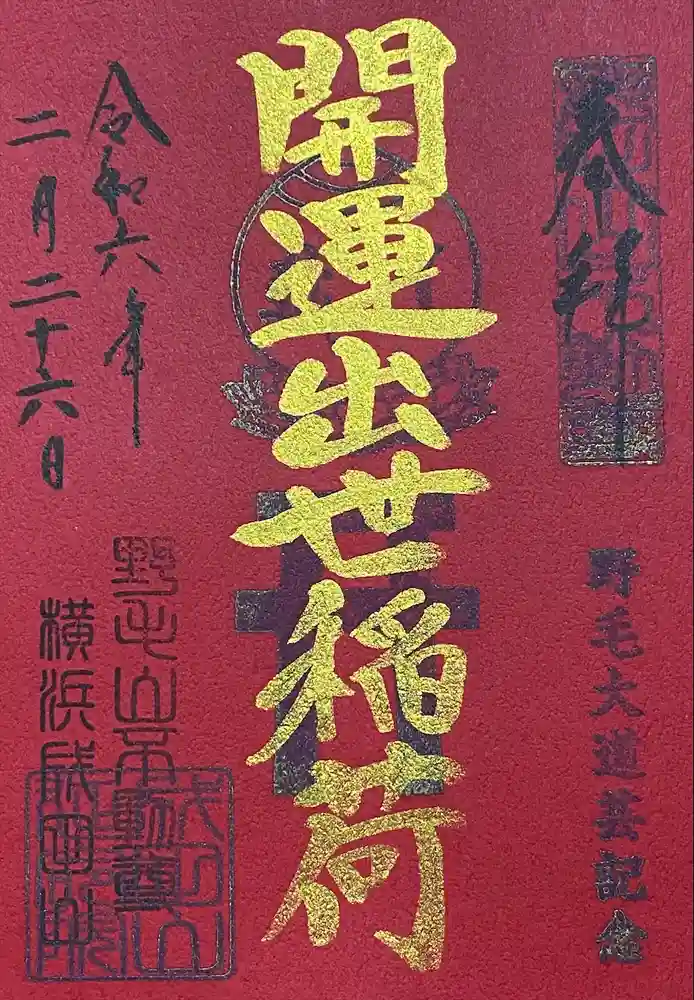 奉拝
野毛大道芸記念
開運出世稲荷
令和六年
二月二十六日
野毛山不動尊
横浜成田山